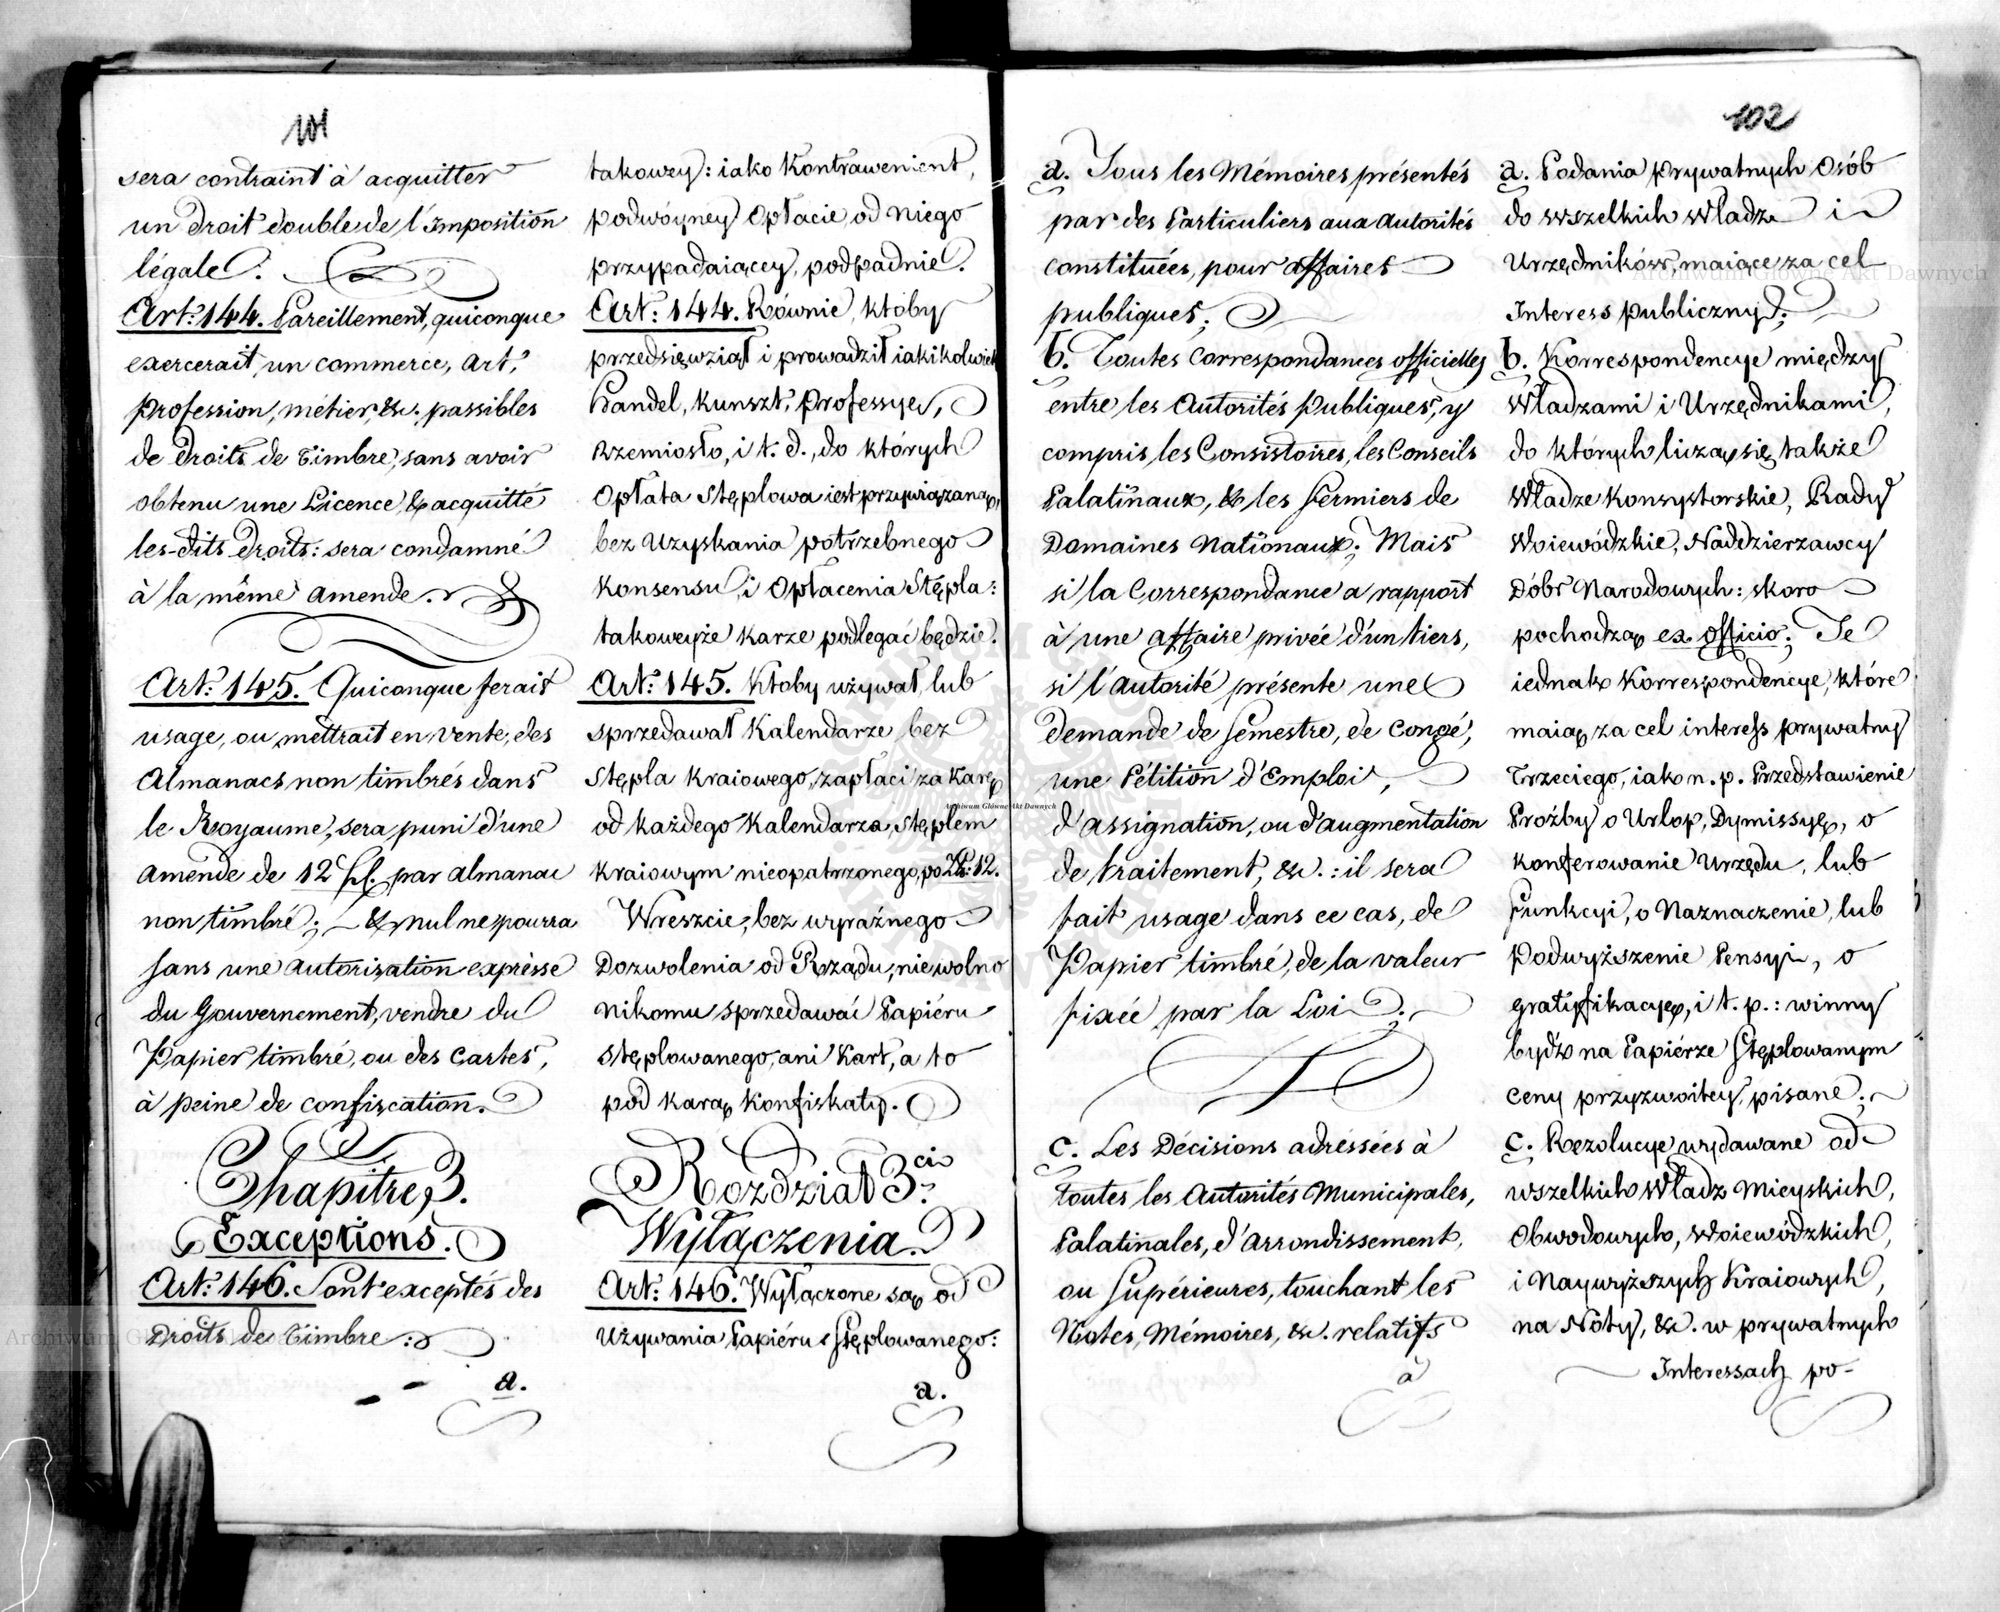 101
sera contraint à acquitter
un droit double de l'Imposition
légale.
Art: 144. Pareillement, quiconque
exercerait un commerce, art,
profession, métier, &c. passibles
de droits de Timbre, sans avoir
obtenu une Licence, & acquitté
les-dits droits: sera condamné
à la même amende.
Art: 145. Quiconque ferait
usage, ou mettrait en vente, des
Almanacs non timbrés dans
le Royaume, sera puni d'une
amende de 12 fl. par almanac
non timbré; — & nul ne pourra
sans une autorisation expresse
du Gouvernement, vendre du
Papier timbré, ou des Cartes,
à peine de confiscation.
Chapitre 3.
Exceptions.
Art: 146. Sont exceptés des
Droits de Timbre:
a.
takowey: iako Kontrawenient,
podwóyney Opłacie, od niego
przypadaiącey, podpadnie.
Art: 144. Równie, ktoby
przedsięwziął i prowadził iakikolwiek
Handel, Kunszt, Professye,
Rzemiosło, i t. d., do których
Opłata Stęplowa iest przywiązaną,
bez Uzyskania potrzebnego
Konsensu, i Opłacenia Stępla:
takoweyże karze podlegać będzie.
Art: 145. Ktoby używał, lub
sprzedawał Kalendarze bez
Stępla Kraiowego, zapłaci za karę
od każdego Kalendarza, Stęplem
Kraiowym nieopatrzonego, po Zł: 12.
Wreszcie, bez wyraźnego
Dozwolenia od Rządu, niewolno
nikomu sprzedawać Papiéru
stęplowanego, ani Kart, a to
pod karą Konfiskaty.
Rozdział 3ci
Wyłączenia.
Art: 146. Wyłączone są od
Używania Papiéru Stęplowanego:
a.
102
a. Tous les Mémoires présentés
par des Particuliers aux Autorités
constituées, pour affaires
publiques;
b. Toutes Correspondances officielles
entre les Autorités Publiques, y
compris les Consistoires, les Conseils
Palatinaux, & les Fermiers de
Domaines Nationaux; Mais
si la Correspondance a rapport
à une affaire privée d'un tiers,
si l'autorité présente une
demande de Semestre, de Congé,
une Pétition d'Emploi,
d'assignation, ou d'augmentation
de traitement, &c.: il sera
fait usage dans ce cas, de
Papier timbré, de la valeur
fixée par la Loi;
c. Les Décisions adréssées à
toutes les Autorités Municipales,
Palatinales, d'Arrondissement,
ou Supérieures, touchant les
Notes, Mémoires, &c. relatifs
à
a. Podania prywatnych Osób
do wszelkich Władz i
Urzędników, maiące za cel
Interess publiczny;
b. Korrespondencye między
Władzami i Urzędnikami,
do których liczą się także
Władze Konsystorskie, Rady
Woiewódzkie, Naddzierzawcy
Dóbr Narodowych: skoro
pochodzą ex officio; Te
iednak Korrespondencye, które
maią za cel interess prywatny
Trzeciego, iako n. p. Przedstawienie
Proźby o Urlop, Dymissyę, o
konferowanie Urzędu, lub
Funkcyi, o Naznaczenie, lub
Podwyższenie Pensyi, o
gratyfikacyę, i t. p.: winny
bydź na Papiérze Stęplowanym
ceny przyzwoitey, pisane;
c. Rezolucye wydawane od
wszelkich Władz Mieyskich,
Obwodowych, Woiewódzkich,
i Naywyższych Kraiowych,
na Noty, &c. w prywatnych
Interessach po-
Archiwum Główne Akt Dawnych